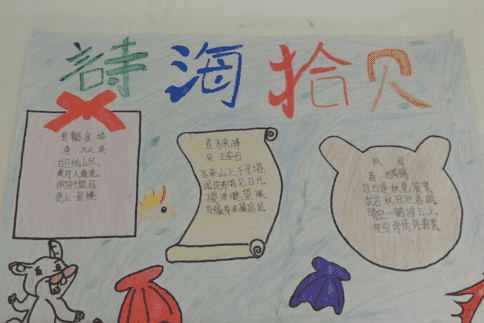 詩海拾贝
登鹳雀楼
唐 王之涣
白日依山尽，
黄河入海流。
欲穷千里目，
更上一层楼。
登飞来峰
宋 王安石
飞来山上千寻塔，
闻说鸡鸣见日升。
不畏浮云遮望眼，
自缘身在最高层。
秋词
唐 刘禹锡
自古逢秋悲寂寥，
我言秋日胜春朝。
晴空一鹤排云上，
便引诗情到碧霄。